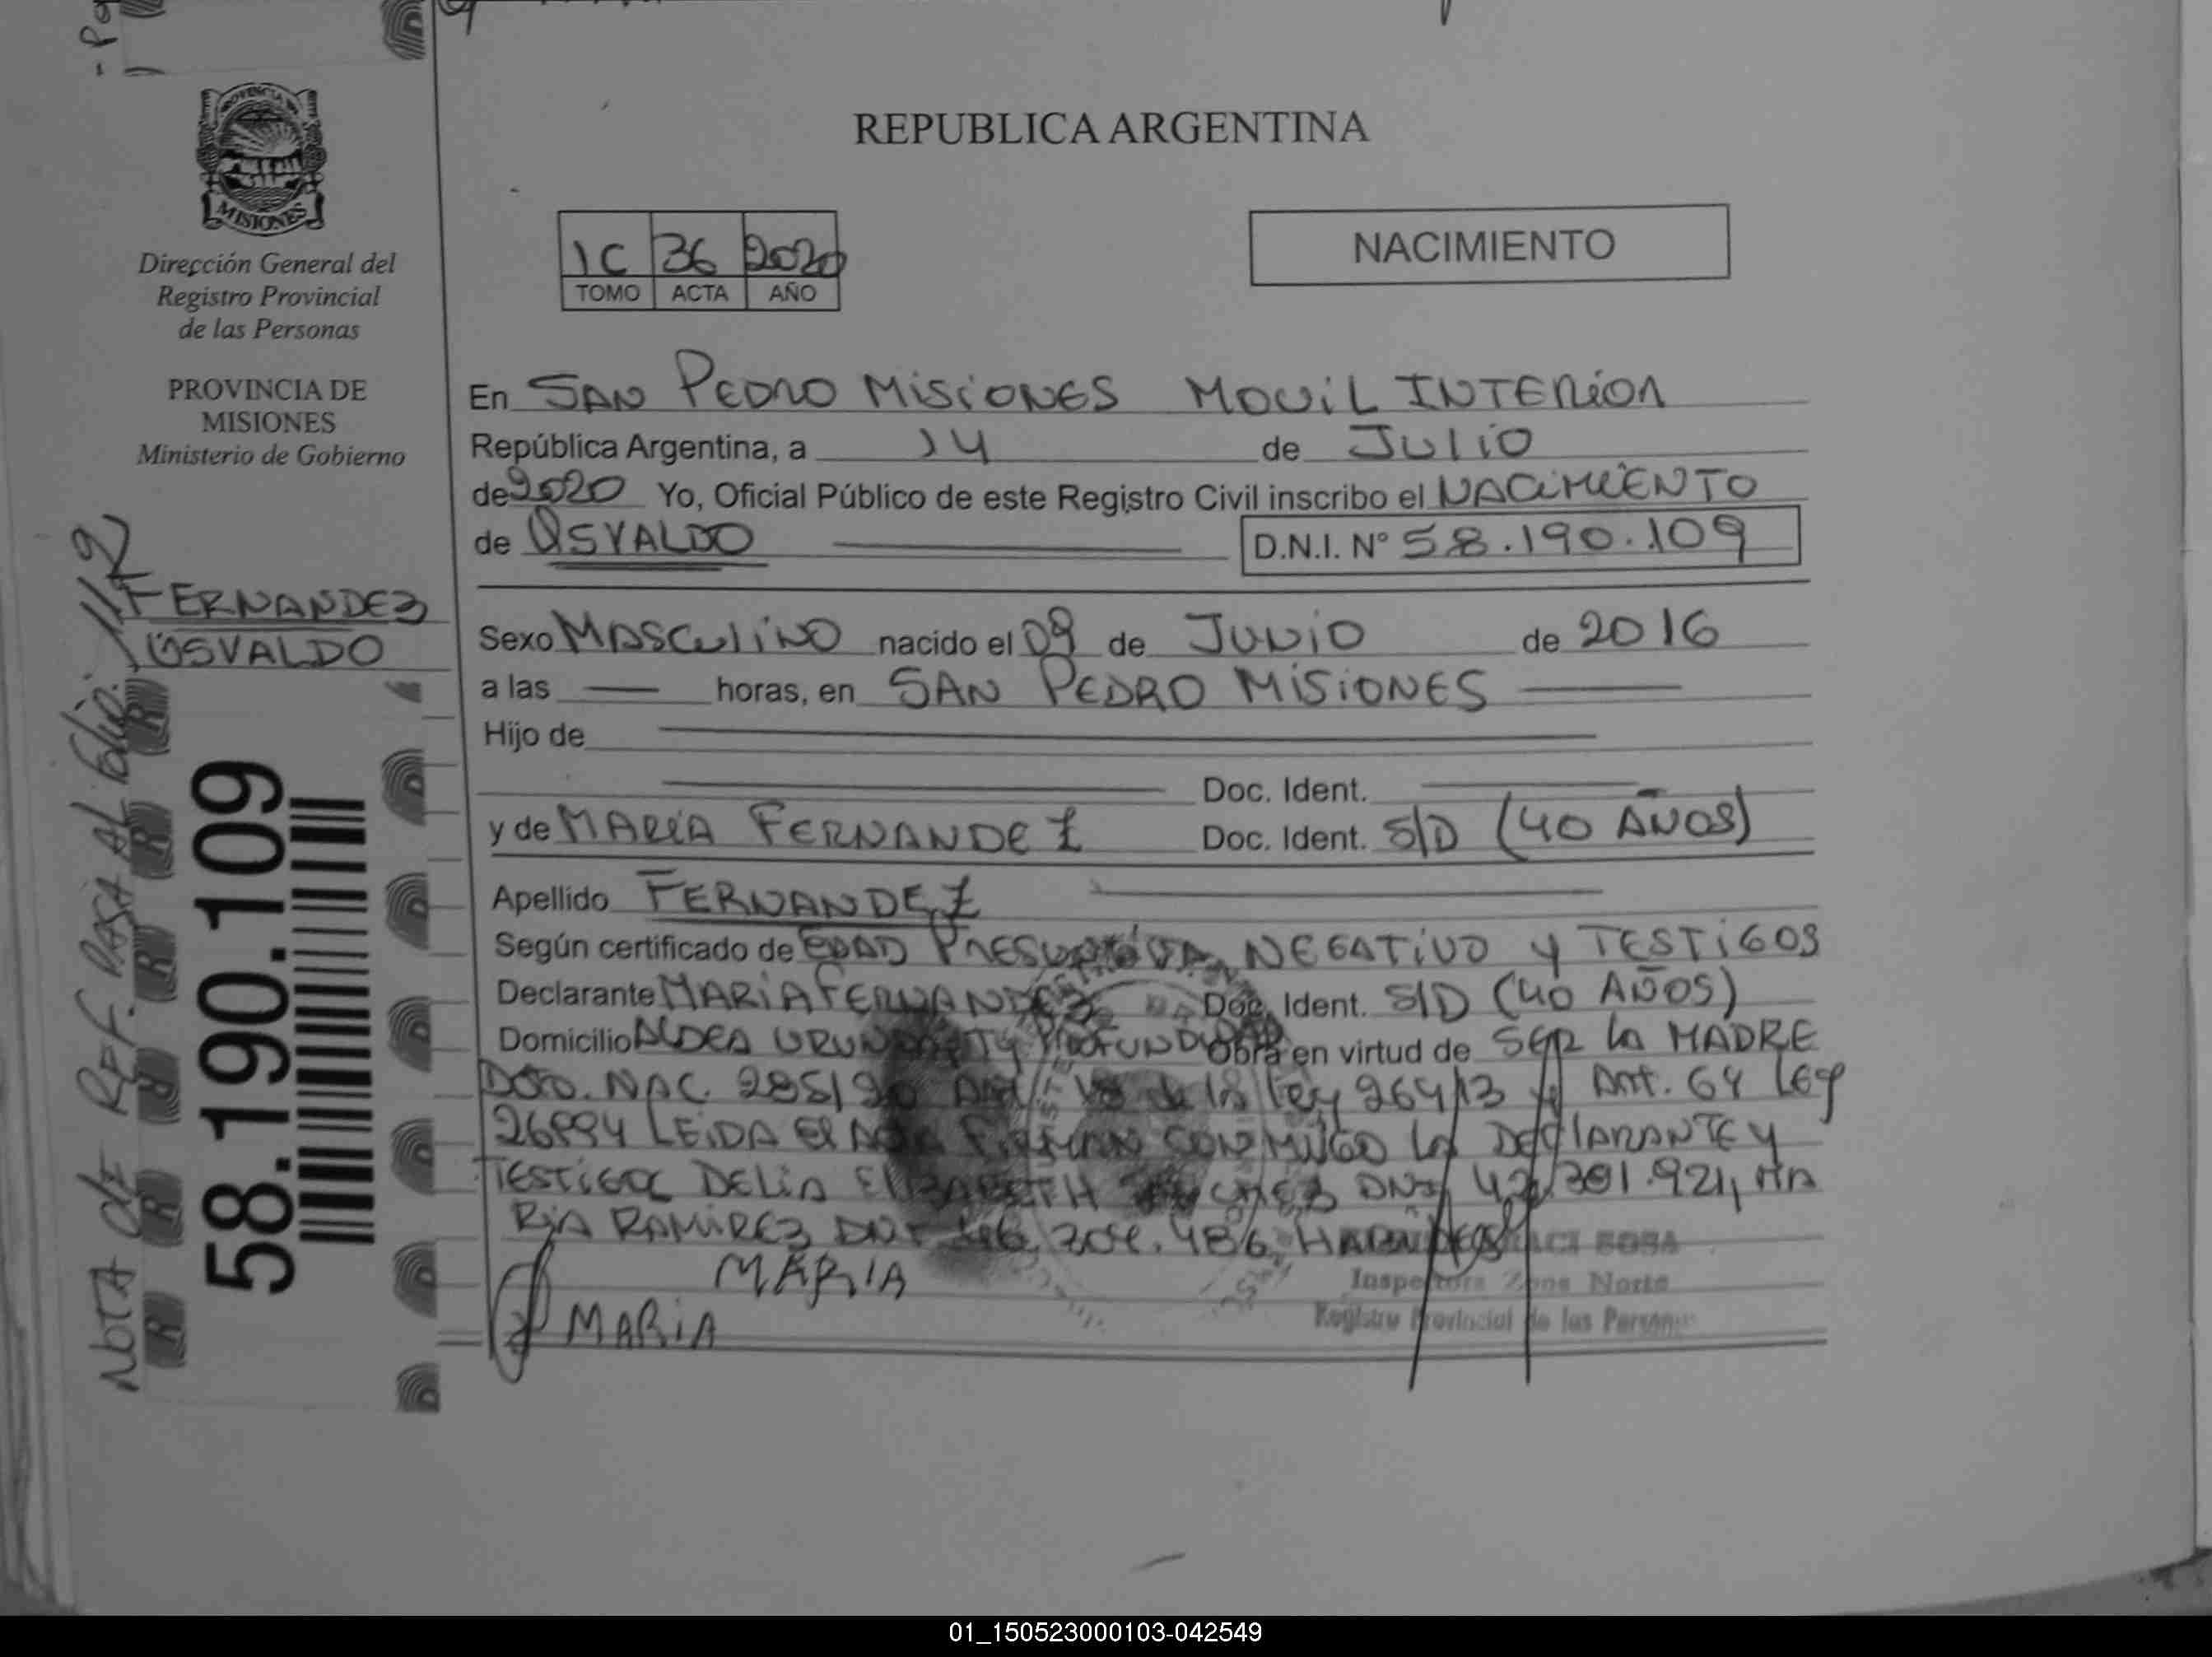 MISIONES
Dirección General del
Registro Provincial
de las Personas
PROVINCIA DE
MISIONES
Ministerio de Gobierno
FERNANDEZ
OSVALDO
58.190.109
NOTA de REF. PASA AL folio: 112
REPUBLICA ARGENTINA
1C 36 2020
TOMO ACTA AÑO
NACIMIENTO
En SAN PEDRO MISIONES MOVIL INTERIOR
República Argentina, a 14 de JULIO
de 2020 Yo, Oficial Público de este Registro Civil inscribo el NACIMIENTO
de OSVALDO D.N.I. N° 58.190.109
Sexo MASCULINO nacido el 09 de JUNIO de 2016
a las — horas, en SAN PEDRO MISIONES
Hijo de
Doc. Ident.
y de MARIA FERNANDEZ Doc. Ident. S/D (40 AÑOS)
Apellido FERNANDEZ
Según certificado de EDAD PRESUNTIVA, NEGATIVO Y TESTIGOS
Declarante MARIA FERNANDEZ Doc. Ident. S/D (40 AÑOS)
Domicilio ALDEA PROFUNDIDAD Obra en virtud de SER LA MADRE
DCTO. NAC. 285/20 de la ley 26413 y Art. 64 Ley
26994 LEIDA El ACTA FIRMAN CONMIGO LA DECLARANTE Y
TESTIGOS DELIA ELIZABETH DNI 42.301.921, MA
RIA RAMIREZ DNI 46.204.486
MARIA
MARIA
SOSA
Inspectora Zona Norte
Registro Provincial de las Personas
01_150523000103-042549